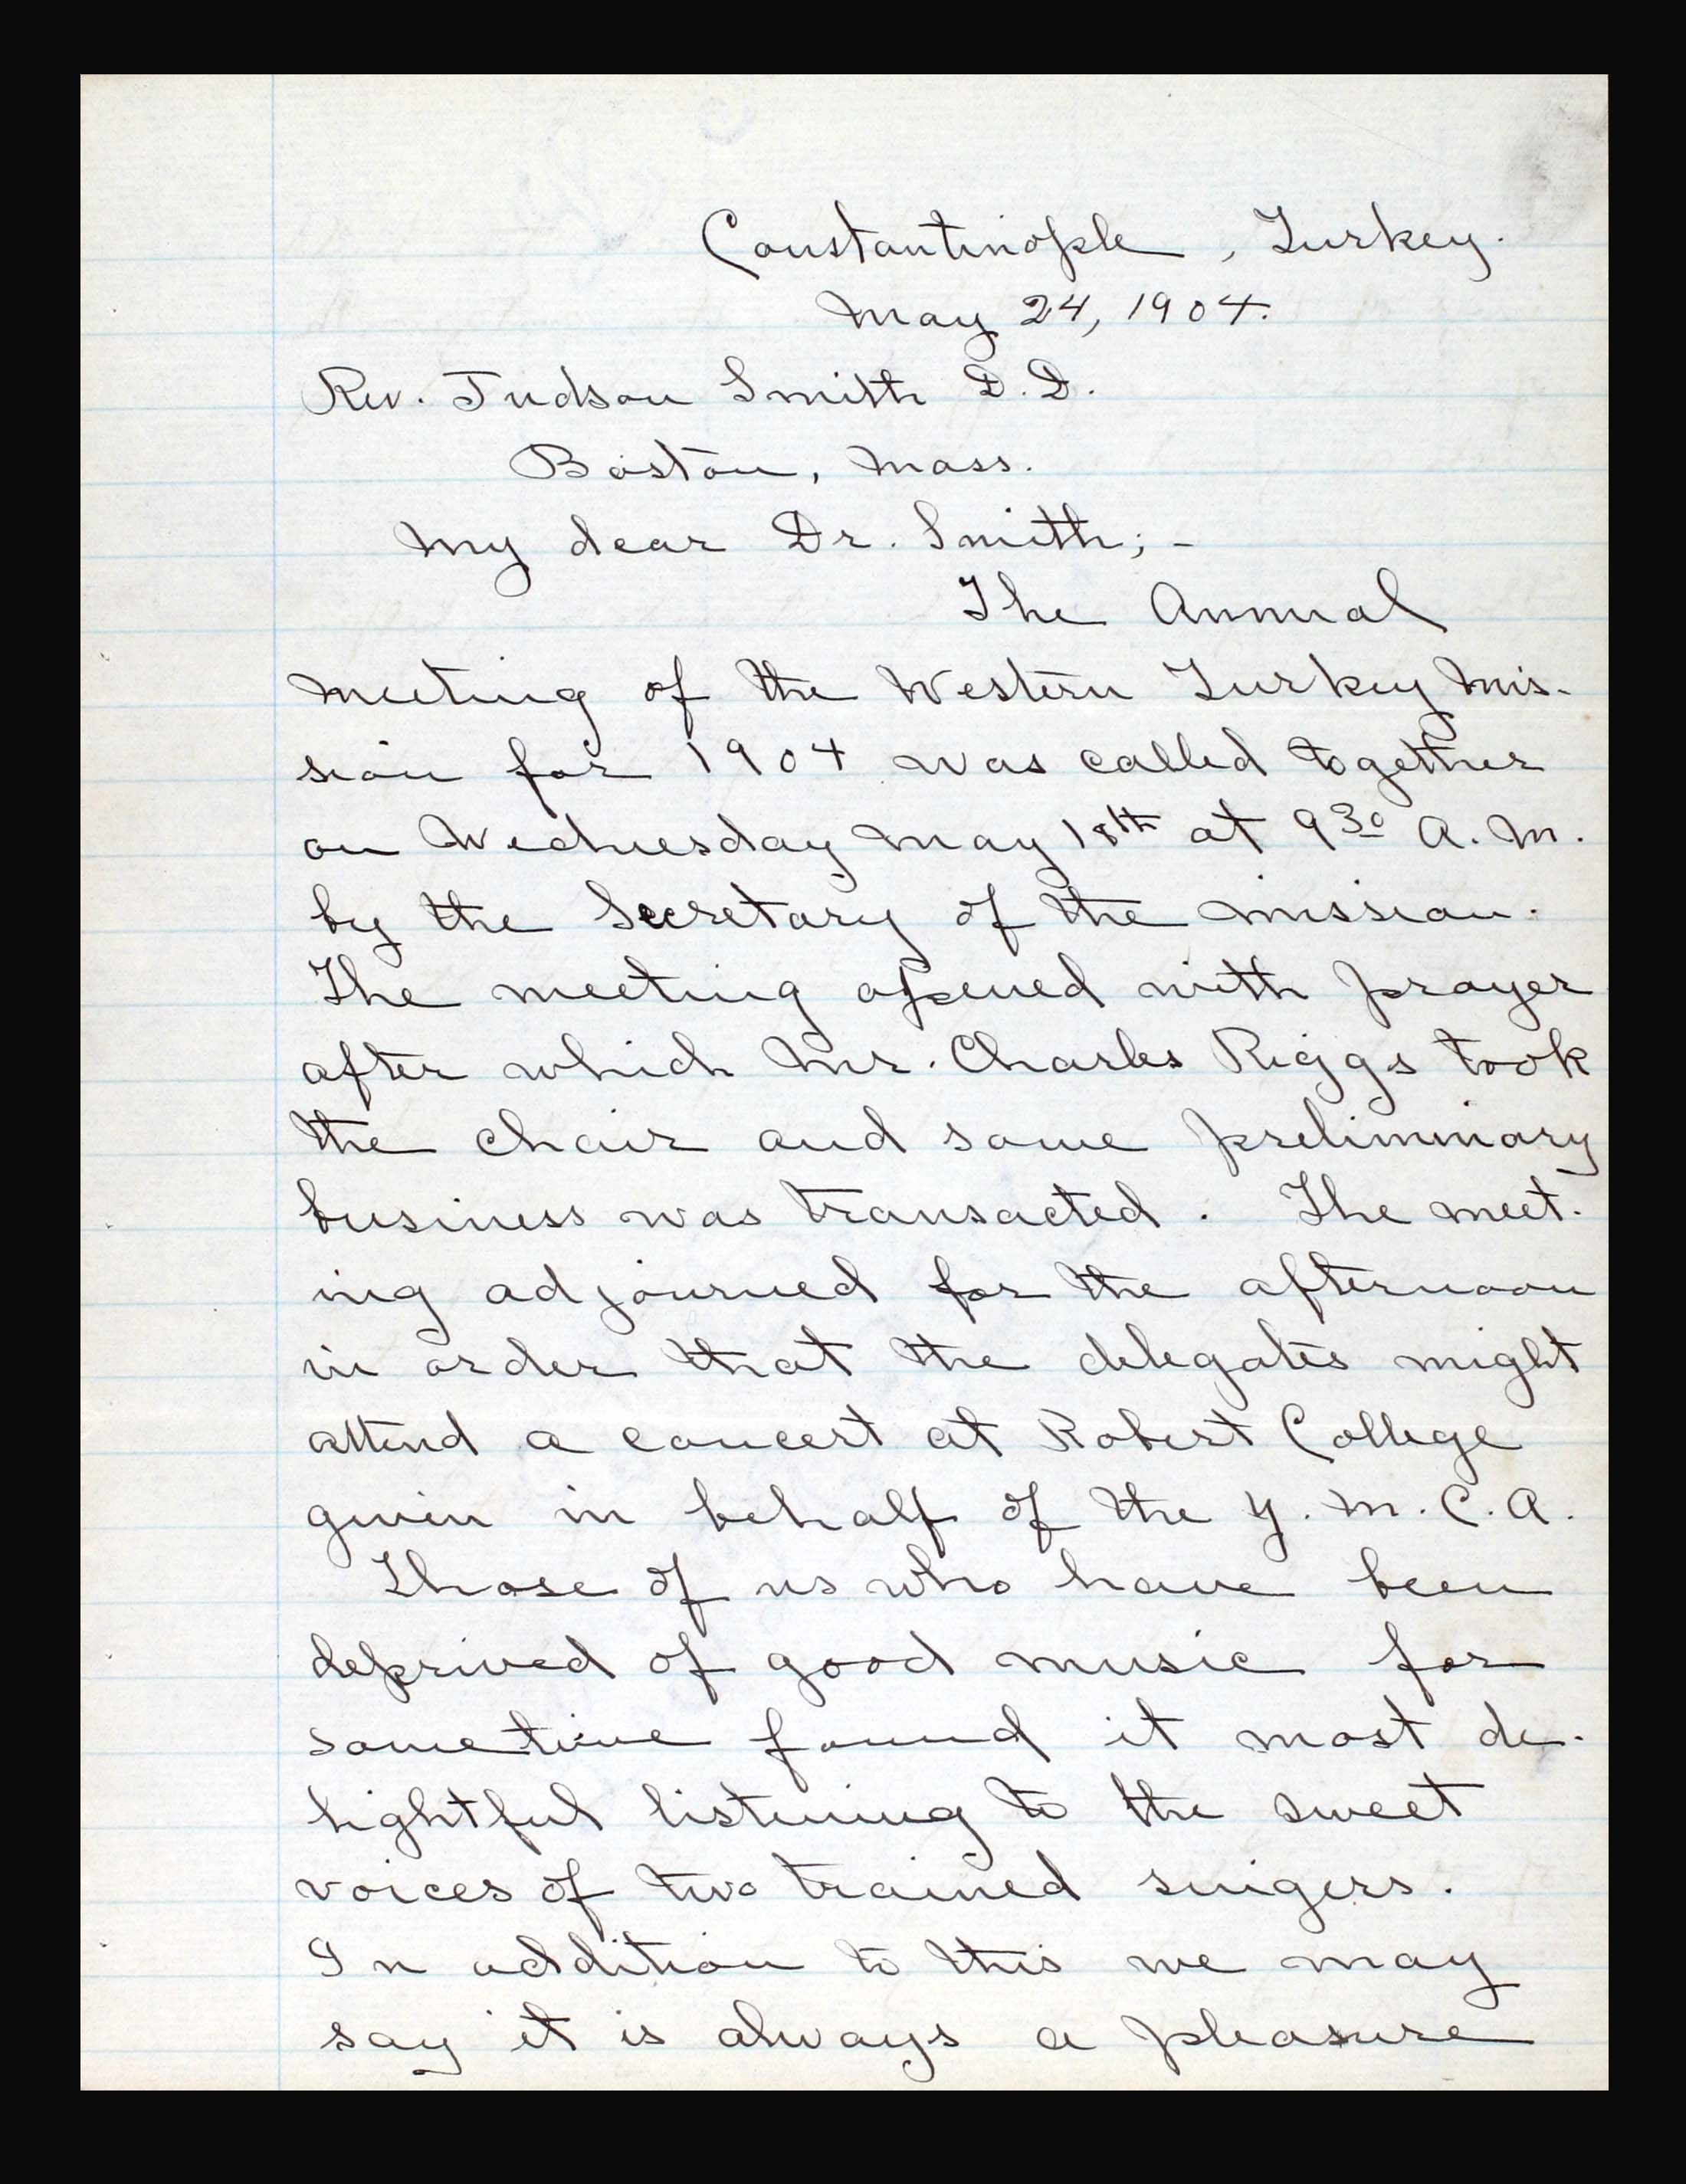 Constantinople, Turkey.
May 24, 1904.
Rev. Judson Smith D.D.
Boston, Mass.
My dear Dr. Smith; -
The Annual
meeting of the Western Turkey Mis-
sion for 1904 was called together
on Wednesday May 18th at 9 30 A.M.
by the Secretary of the mission.
The meeting opened with prayer
after which Mr. Charles Riggs took
the chair and some preliminary
business was transacted. The meet-
ing adjourned for the afternoon
in order that the delegates might
attend a concert at Robert College
given in behalf of the Y.M.C.A.
Those of us who have been
deprived of good music for
sometime found it most de-
lightful listening to the sweet
voices of two trained singers.
In addition to this we may
say it is always a pleasure